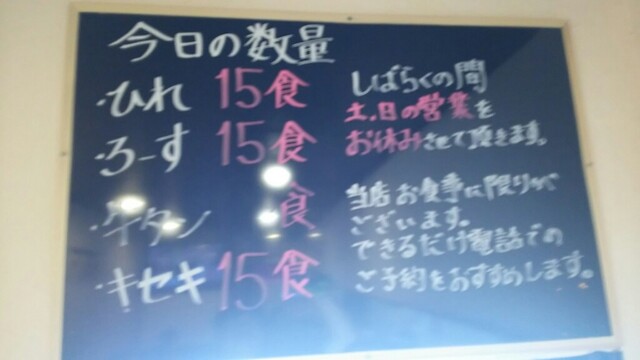 今日の数量
・ひれ 15食
・ろーす 15食
・ケイタン 食
・キセキ 15食
しばらくの間
土,日の営業を
お休みさせて頂きます。
当店お食事に限りが
ございます。
できるだけ電話での
ご予約をおすすめします。